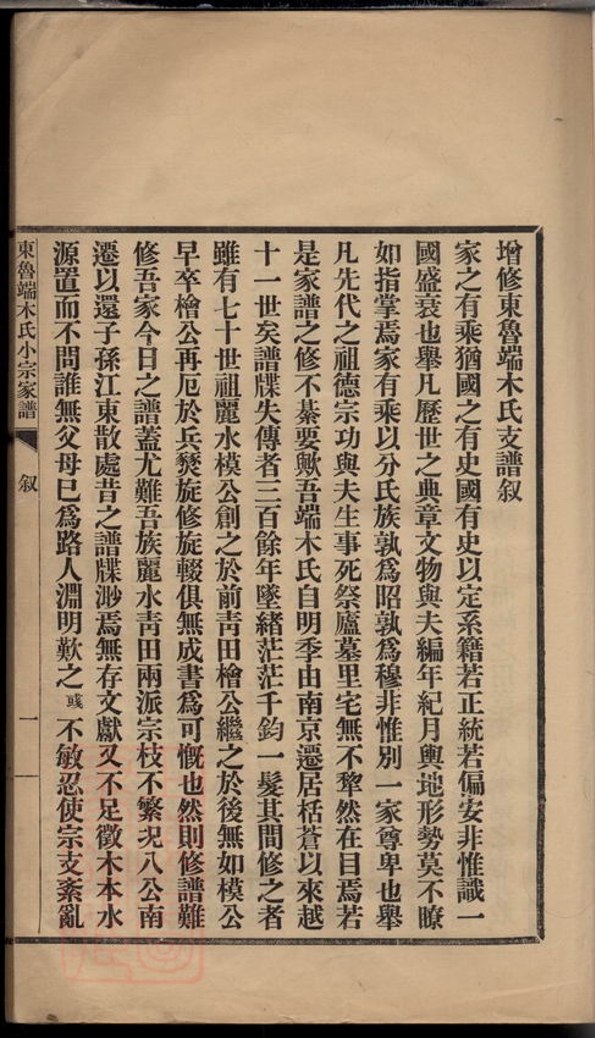 增修東魯端木氏支譜叙
家之有乘猶國之有史國有史以定系籍若正統若偏安非惟識一
國盛衰也舉凡歷世之典章文物與夫編年紀月輿地形勢莫不瞭
如指掌焉家有乘以分氏族孰爲昭孰爲穆非惟別一家尊卑也舉
凡先代之祖德宗功與夫生事死祭廬墓里宅無不犂然在目焉若
是家譜之修不綦要歟吾端木氏自明季由南京遷居栝蒼以來越
十一世矣譜牒失傳者三百餘年墜緒茫茫千鈞一髮其間修之者
雖有七十世祖麗水模公創之於前靑田檜公繼之於後無如模公
早卒檜公再厄於兵燹旋修旋輟俱無成書爲可慨也然則修譜難
修吾家今日之譜蓋尤難吾族麗水靑田兩派宗枝不繁況八公南
遷以還子孫江東散處昔之譜牒渺焉無存文獻又不足徵木本水
源置而不問誰無父母巳爲路人淵明歎之彧不敏忍使宗支紊亂
東魯端木氏小宗家譜
叙
一